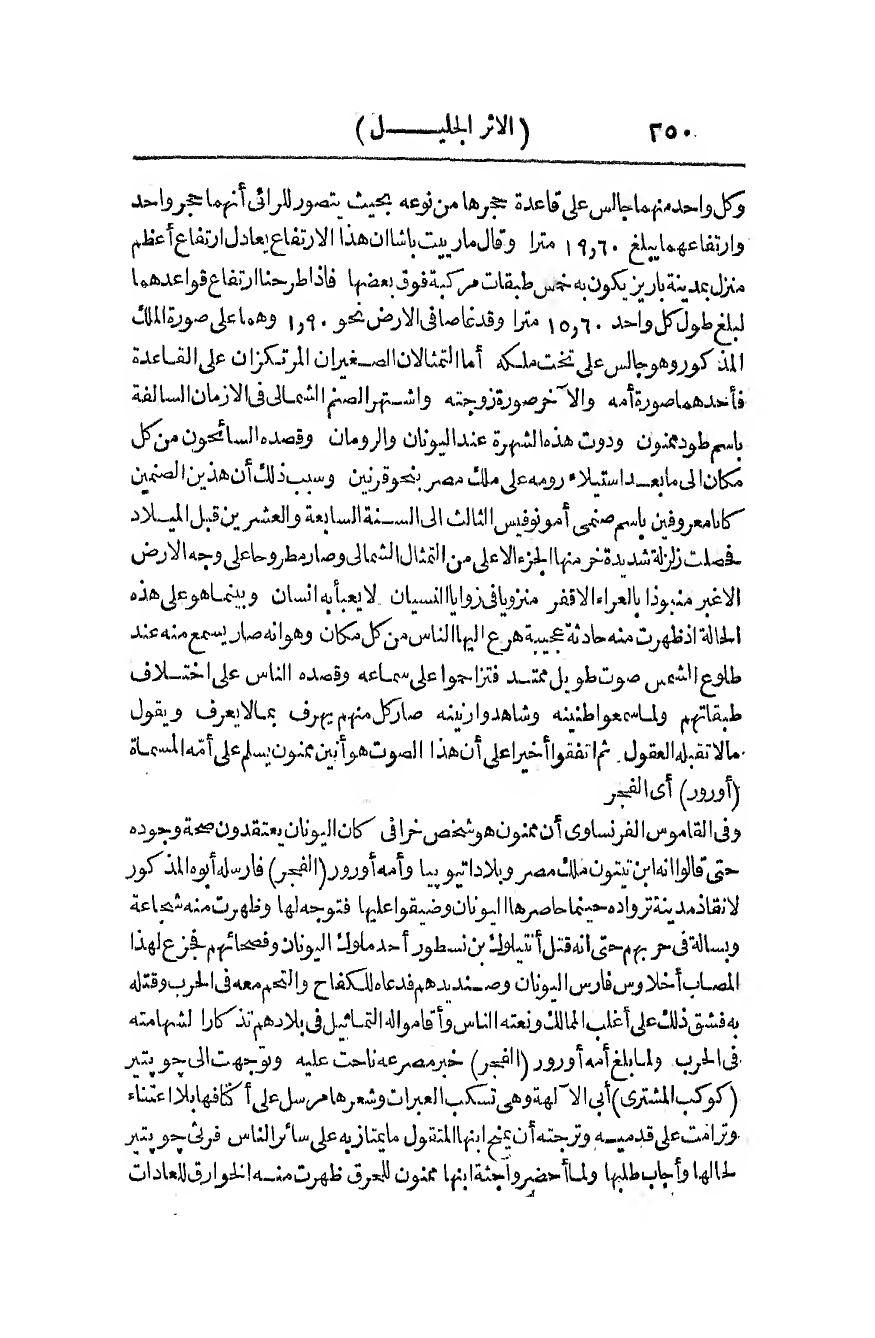 ٢٥٠ (الاثر الجليــــل)
وكل واحد منهما جالس على قاعدة حجرها من نوعه بحيث يتصور للرائى أنهما حجر واحد
وارتفاعهما يبلغ ١٩,٦٠ مترا وقال مارييت باشا ان هذا الارتفاع يعادل ارتفاع أعظم
منزل بمدينة باريز يكون به خمس طبقات مركبة فوق بعضها فاذا طرحنا ارتفاع قواعدهما
لبلغ طول كل واحد ١٥,٦٠ مترا وقد غاصا فى الارض نحو ١,٩٠ وهما على صورة الملك
المذكور وهو جالس على تخت ملكه أما التمثالان الصغيران المرتكزان على القاعدة
فأحدهما صورة أمه والآخر صورة زوجته واشتهر الصنم الشمالى فى الازمان السالفة
باسم طود ممنون ودوت هذه الشهرة عند اليونان والرومان وقصده السائحون من كل
مكان الى ما بعد استيلاء رومه على ملك مصر بنحو قرنين وسبب ذلك أن هذين الصنمين
كانا معروفين باسم صنمى أمونوفيس الثالث الى السنة السابعة والعشرين قبل الميلاد
فحصلت زلزلة شديدة خر منها الجزء الاعلى من التمثال الشمالى وصار مطروحا على وجه الارض
الاغبر منبوذا بالعراء الاقفر منزويا فى زوايا النسيان لا يعبأ به انسان وبينما هو على هذه
الحالة اذ ظهرت منه حادثة عجيبة هرع اليها الناس من كل مكان وهو انه صار يسمع منه عند
طلوع الشمس صوت طويل ممتد فتزاحموا على سماعه وقصده الناس على اختلاف
طبقاتهم ولما سمعوا طنينه وشاهدوا رنينه صار كل منهم يهرف بما لا يعرف ويقول
ما لا تقبله العقول. ثم اتفقوا أخيرا على أن هذا الصوت هو أنين ممنون يسلم على أمّه المسماة
(أورور) أى الفجر
وفى القاموس الفرنساوى أن ممنون هو شخص خرافى كان اليونان يعتقدون صحة وجوده
حتى قالوا انه ابن تيتون ملك مصر وبلاد اتيوبيا وأمه أورور (الفجر) فارسله أبوه المذكور
لانقاذ مدينة ترواده حينما حاصرها اليونان وضيقوا عليها فتوجه لها وظهرت منه شجاعة
وبسالة فى حربهم حتى أنه قتل أنتيلوك بن نسطور أحد ملوك اليونان وفصحائهم فجزع لهذا
المصاب أخلاوس فارس اليونان وصنديدهم فدعاه للكفاح والتحم معه فى الحرب وقتله
به فشق ذلك على أغلب الممالك ونعته الناس وأقاموا له التماثيل فى بلادهم تذكارا لشهامته
فى الحرب ولما بلغ أمه أورور (الفجر) خبر مصرعه ناحت عليه وتوجهت الى جوپتير
(كوكب المشترى) أبى الآلهة وهى تسكب العبرات وشعرها مرسل على أكتافها بلا اعتناء
وترامت على قدميه وترجته أن يمنح ابنها المتقول ما يمتاز به على سائر الناس فرثى جوپتير
لحالها وأجاب طلبها ولما أحضروا جثة ابنها ممنون للحرق ظهرت منه الخوارق للعادات